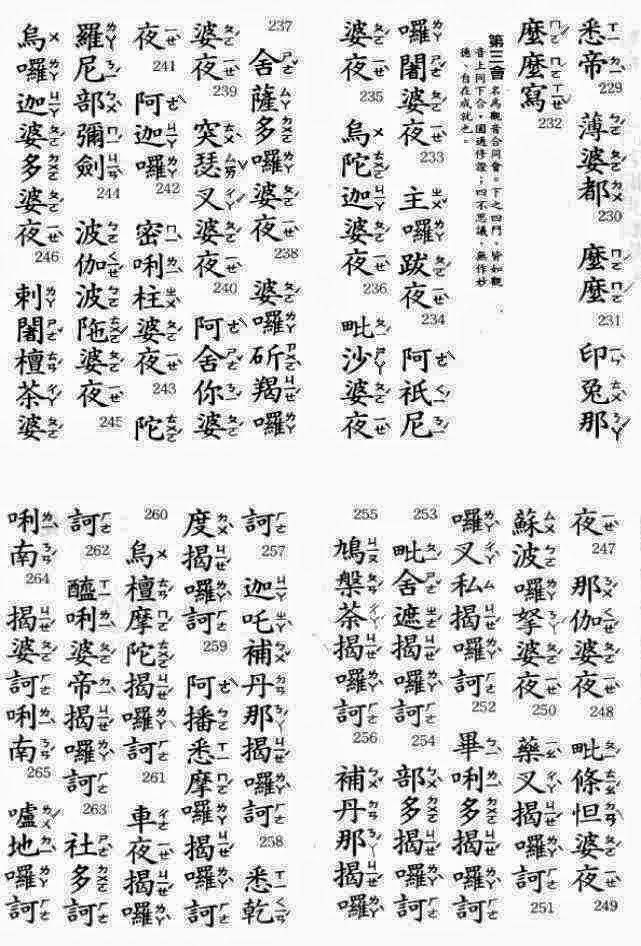 悉帝 229 薄婆都 230 麼麼 231 印兔那
麼麼寫 232
第三會 名為觀音合同會。下之四門,皆如觀
音上同下合,圓通修證;四不思議,無作妙
德、自在成就也。
囉闍婆夜 233 主囉跋夜 234 阿祇尼
婆夜 235 烏陀迦婆夜 236 毗沙婆夜
237 舍薩多囉婆夜 238 婆囉斫羯囉
婆夜 239 突瑟叉婆夜 240 阿舍你婆
夜 241 阿迦囉 242 密唎柱婆夜 243 陀
羅尼部彌劍 244 波伽波陁婆夜 245
烏囉迦婆多婆夜 246 剌闍檀茶婆
夜 247 那伽婆夜 248 毗條怛婆夜 249
蘇波囉拏婆夜 250 藥叉揭囉訶 251
囉叉私揭囉訶 252 畢唎多揭囉訶
253 毗舍遮揭囉訶 254 部多揭囉訶
255 鳩槃茶揭囉訶 256 補丹那揭囉
訶 257 迦吒補丹那揭囉訶 258 悉乾
度揭囉訶 259 阿播悉摩囉揭囉訶
260 烏檀摩陀揭囉訶 261 車夜揭囉
訶 262 醯唎婆帝揭囉訶 263 社多訶
唎南 264 揭婆訶唎南 265 嚧地囉訶